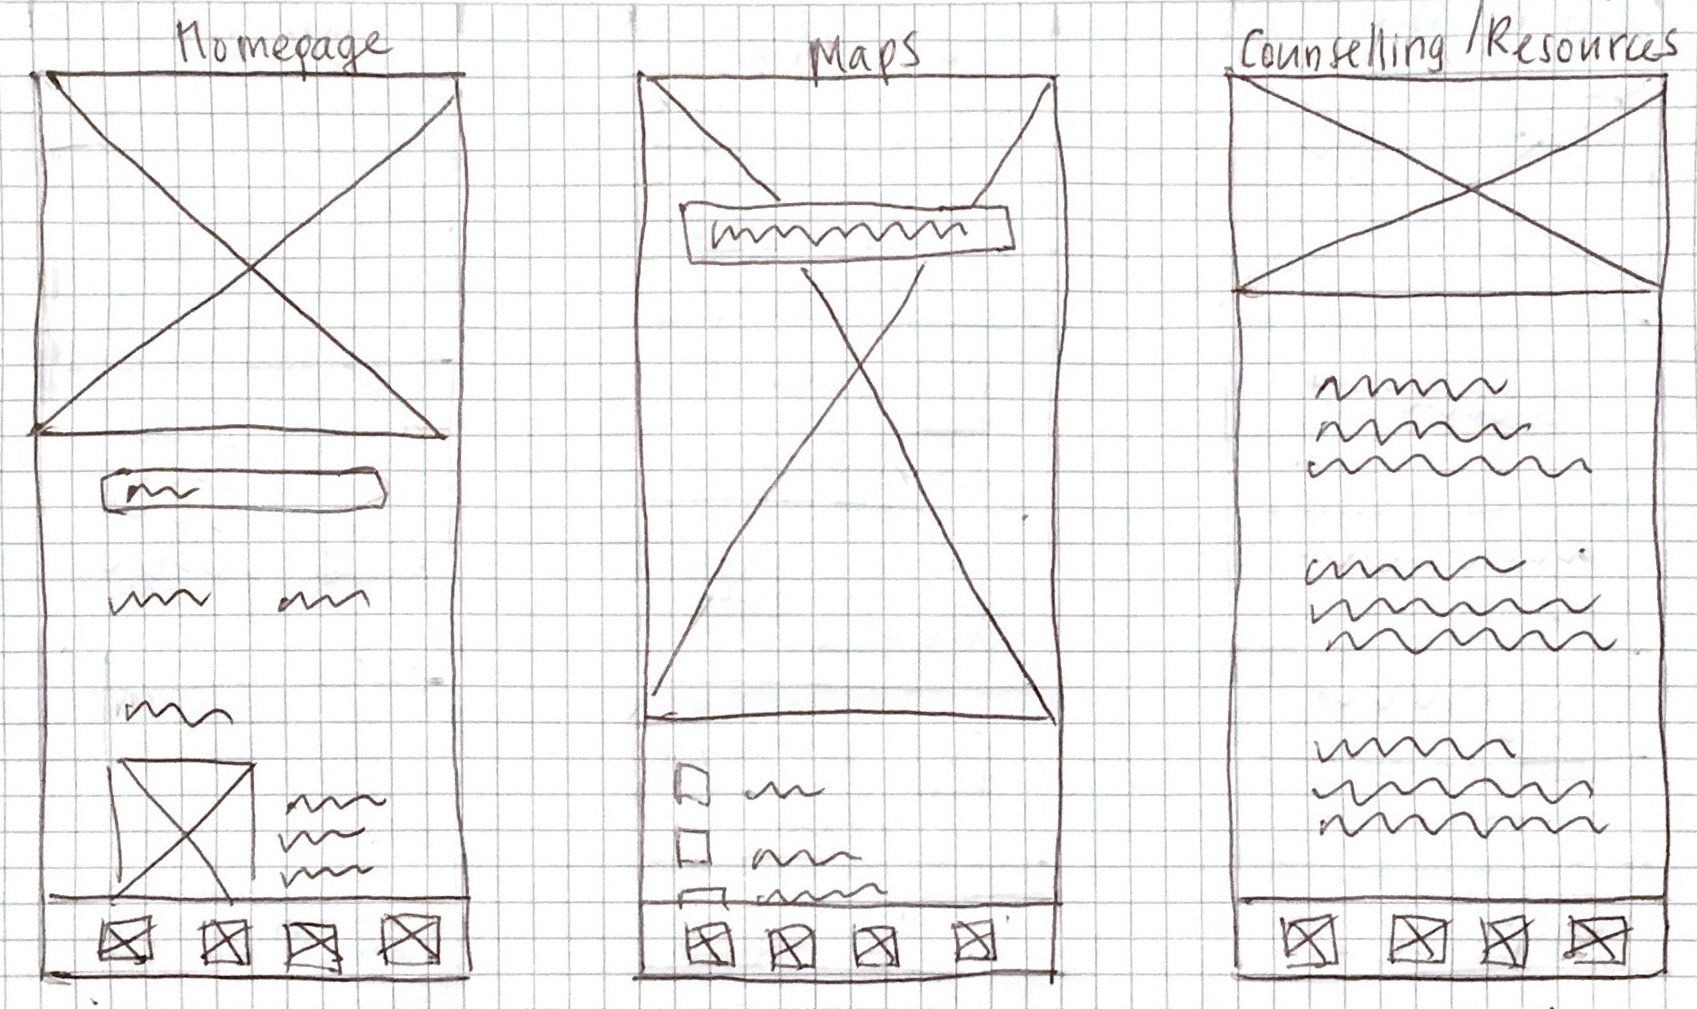 Homepage
Maps
Counselling / Resources